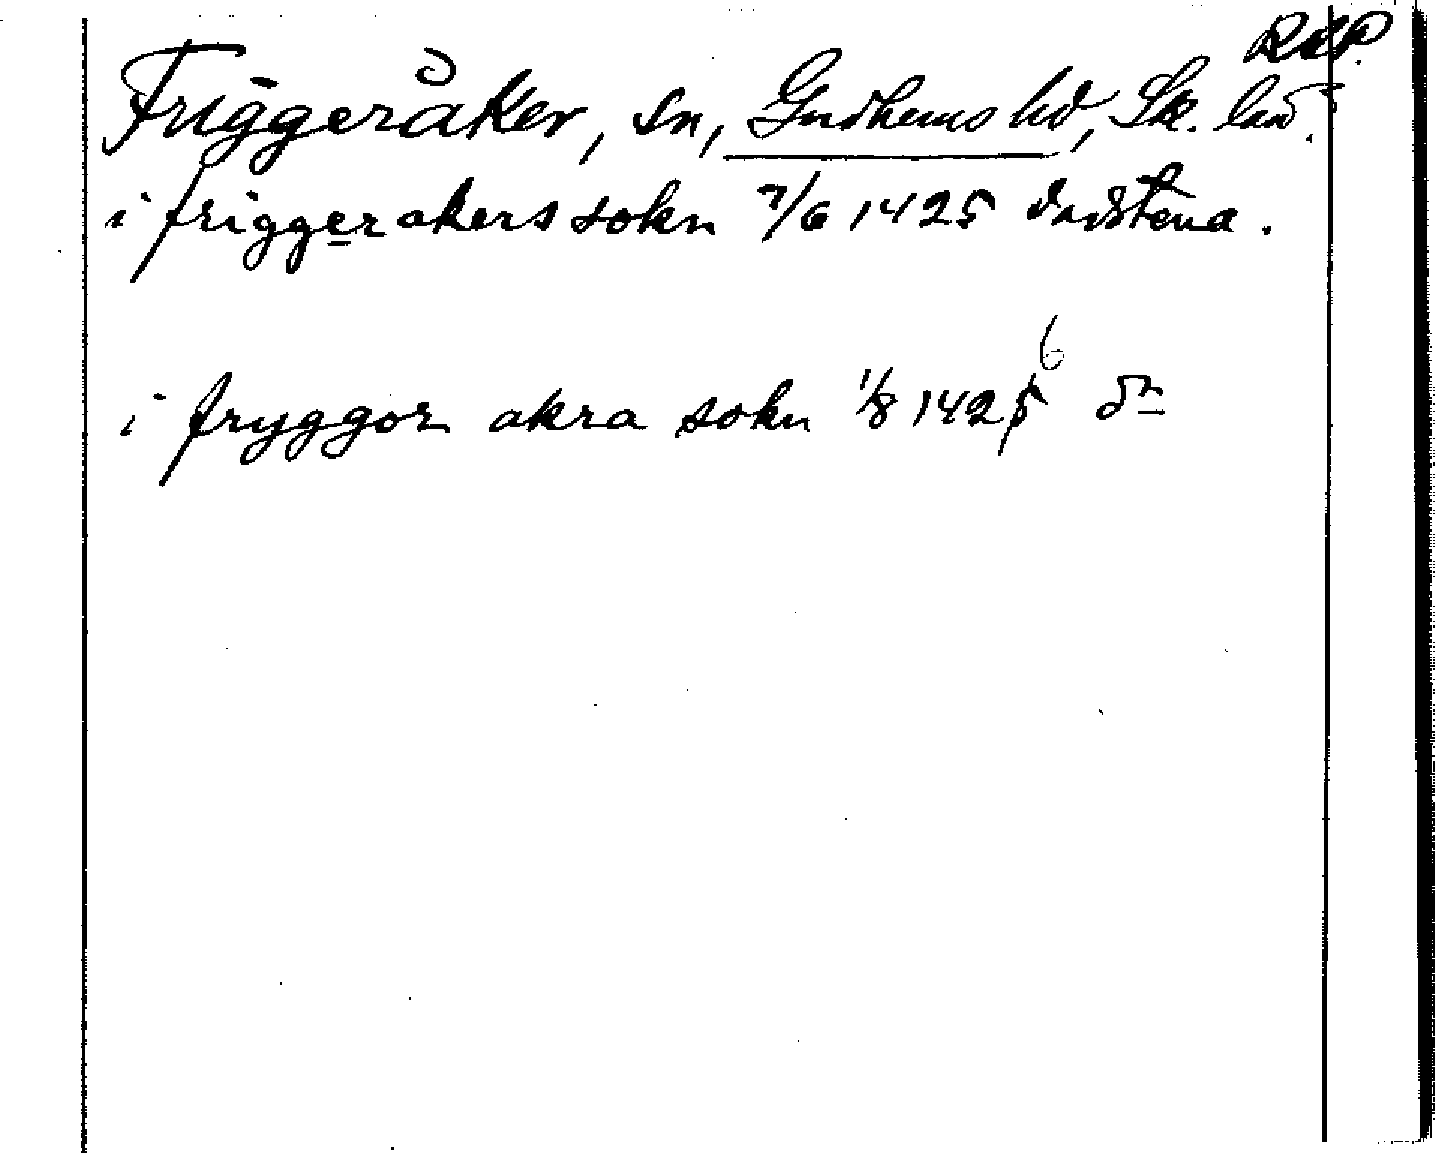 RAP.
Friggeråker, sn, Gudhems hd, Sk. län.
i friggerakers sokn 7/6 1425 Vadstena.
i fryggor akra sokn 1/8 1425 6 do